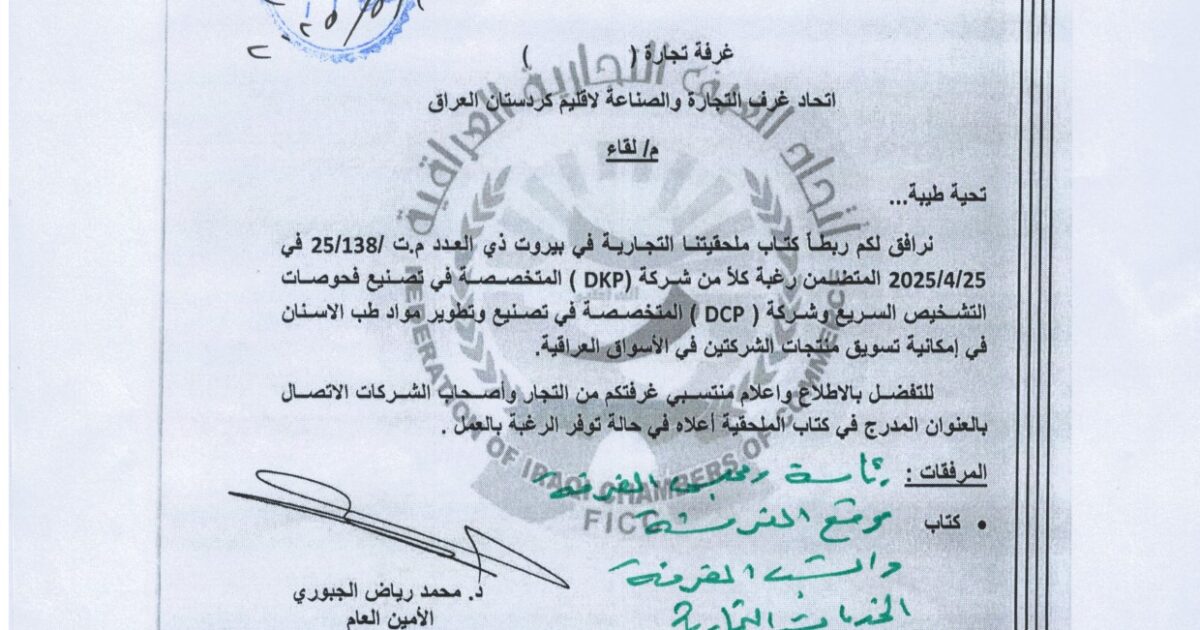 غرفة تجارة ( )
اتحاد غرف التجارة والصناعة لاقليم كردستان العراق
م/ لقاء
تحية طيبة...
نرافق لكم ربطاً كتاب ملحقيتنا التجارية في بيروت ذي العدد م.ت /25/138 في
2025/4/25 المتضمن رغبة كلاً من شركة (DKP ) المتخصصة في تصنيع فحوصات
التشخيص السريع وشركة ( DCP ) المتخصصة في تصنيع وتطوير مواد طب الاسنان
في إمكانية تسويق منتجات الشركتين في الأسواق العراقية.
للتفضل بالاطلاع واعلام منتسبي غرفتكم من التجار وأصحاب الشركات الاتصال
بالعنوان المدرج في كتاب الملحقية أعلاه في حالة توفر الرغبة بالعمل .
المرفقات :
• كتاب
موقع الغرفة
الخدمات التجارية
د. محمد رياض الجبوري
الأمين العام
اتحاد الغرف التجارية العراقية
FEDERATION OF IRAQI CHAMBERS OF COMMERCE
FICC